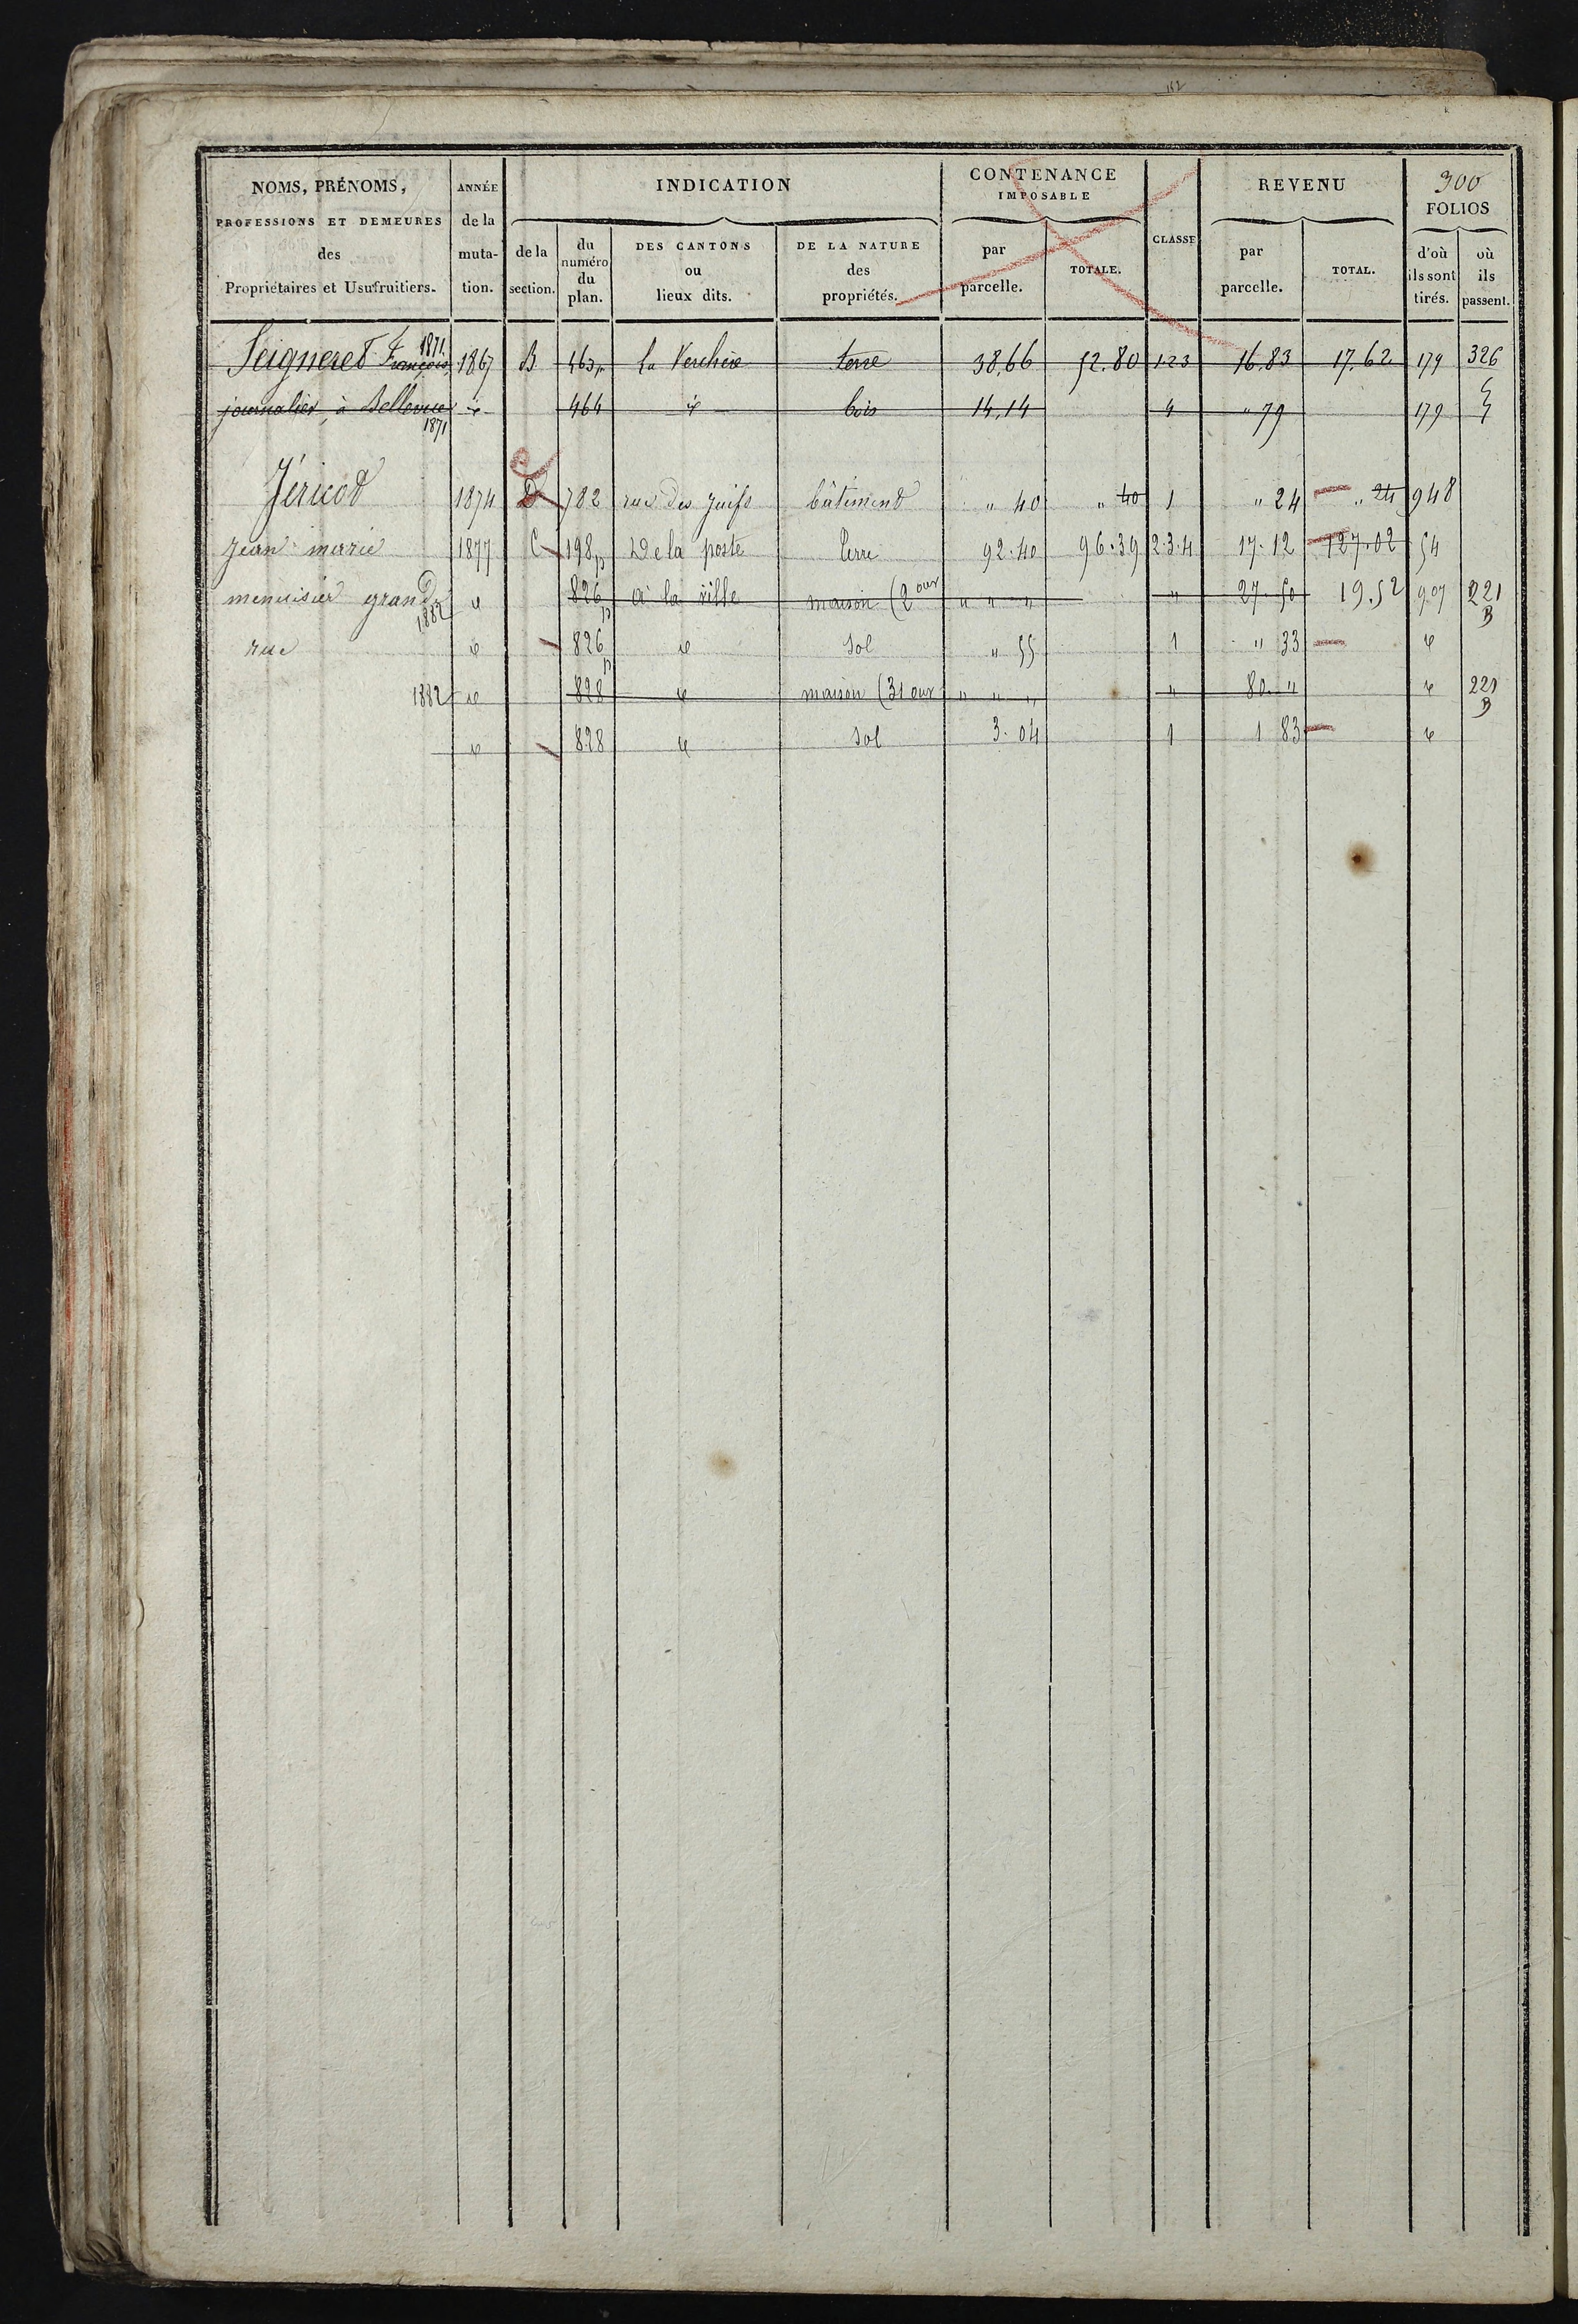 162
NOMS, PRÉNOMS, PROFESSIONS ET DEMEURES des Propriétaires et Usufruitiers.
ANNÉE de la muta-tion.
INDICATION
de la section.
du numéro du plan.
DES CANTONS ou lieux dits.
DE LA NATURE des propriétés.
CONTENANCE IMPOSABLE
par parcelle.
TOTALE.
CLASSE
REVENU
par parcelle.
TOTAL.
300
FOLIOS
d'où ils sont tirés.
où ils passent.
Seigneret François 1871 1867 B 463p La Verchère terre 38,66 52.80 1-2-3 16.83 17.62 179 326
journalier à Bellevue 1871 id 464 id bois 14,14 4 " 79 179
Jéricot 1874 D 782 rue des juifs bâtiment " 40 " 40 1 " 24 " 24 948
jean marie 1877 C 198p De la poste terre 92.40 96.39 2.3.4 17.12 127.02 54
menuisier grande 1882 id 826p à la ville maison (2 ouv " " " " 27.50 19.52 907 221 B
rue id 826p id sol " 55 1 " 33 id
1882 id 828 id maison (31 ouv " " " " 80. " id 221 B
id 828 id sol 3.04 1 1 83 id